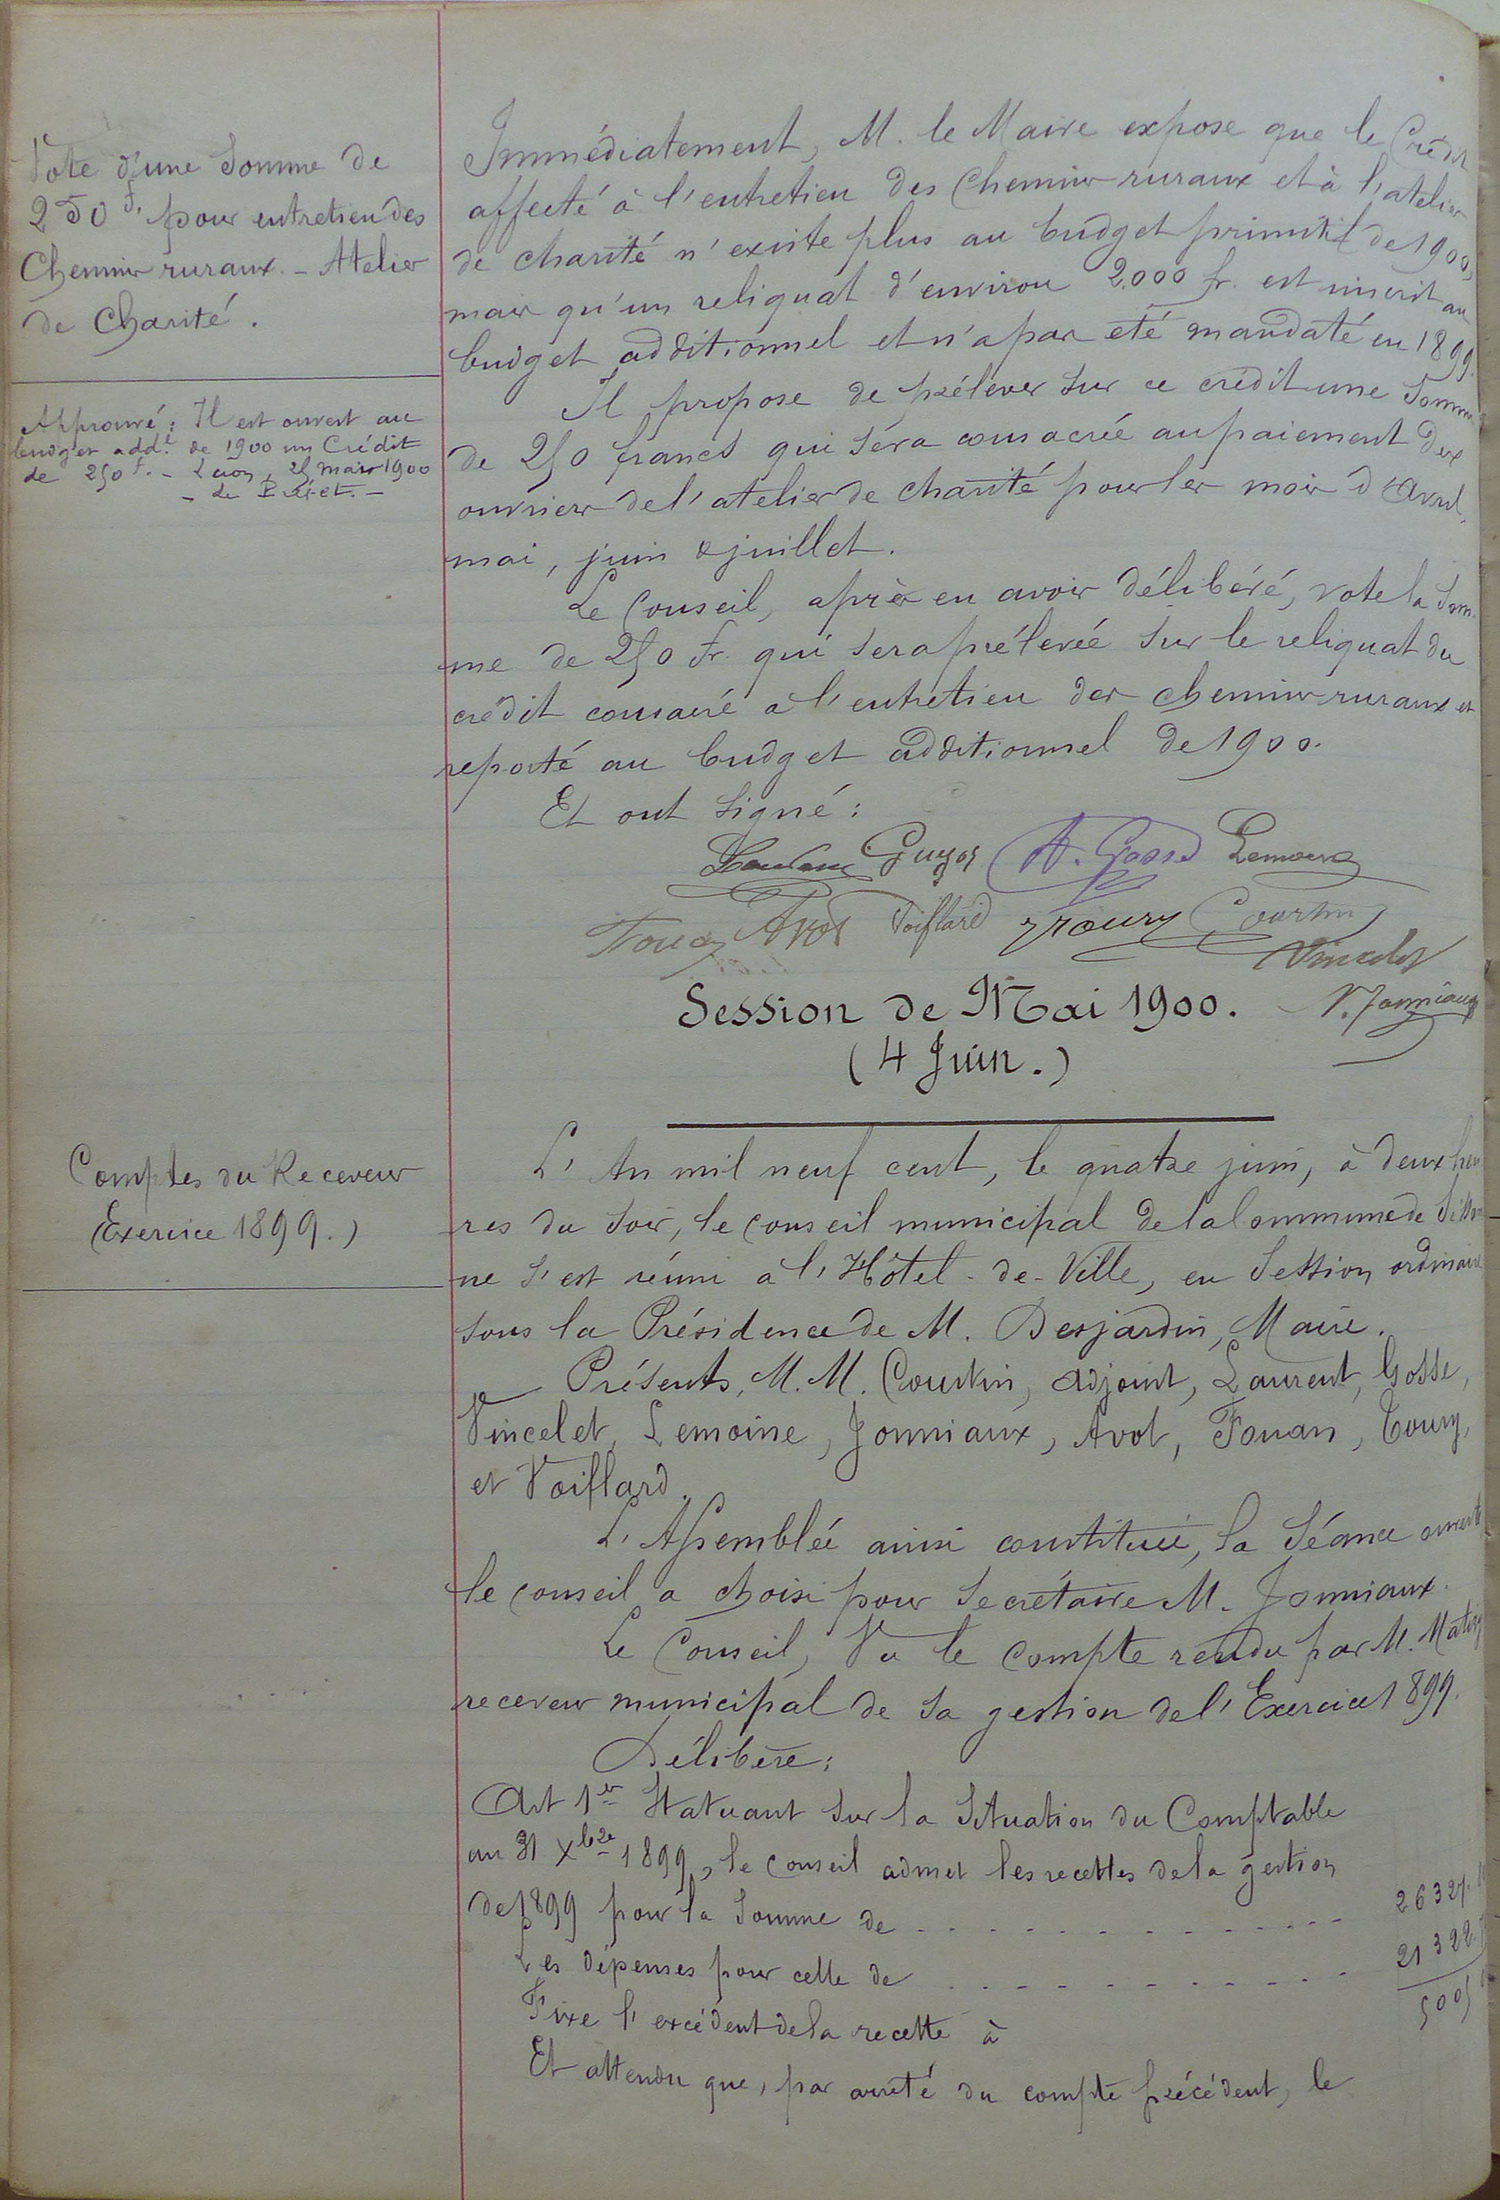 Vote d'une Somme de
250 f. pour entretien des
Chemins ruraux. - Atelier
de Charité.
Approuvé: Il est ouvert au
budget add.l de 1900 un Crédit
de 250 f. - Laon, 25 mars 1900
- Le Préfet. -
Immédiatement, M. le Maire expose que le Crédit
affecté à l'entretien des Chemins ruraux et à l'atelier
de charité n'existe plus au budget primitif de 1900,
mais qu'un reliquat d'environ 2.000 fr. est inscrit au
budget additionnel et n'a pas été mandaté en 1899.
Il propose de prélever sur ce crédit une Somme
de 250 francs qui sera consacrée au paiement des
ouvriers de l'atelier de charité pour les mois d'Avril,
mai, juin & juillet.
Le Conseil, après en avoir délibéré, vote la Som-
me de 250 fr. qui sera prélevée sur le reliquat du
crédit consacré à l'entretien des chemins ruraux et
reporté au budget additionnel de 1900.
Et ont signé:
Laurent Guyot A. Gosse Lemoine
Fouan Avot Voiflard Toury Courtin
Vincelet
V. Jonniaux
Session de Mai 1900.
(4 Juin.)
Comptes du Receveur
(Exercice 1899.)
L'An mil neuf cent, le quatre juin, à deux heu
res du soir, le conseil municipal de la Commune de Sisson
ne s'est réuni à l'Hôtel-de-Ville, en Session ordinaire
sous la Présidence de M. Desjardin, Maire.
Présents, M.M. Courtin, adjoint, Laurent, Gosse,
Vincelet, Lemoine, Jonniaux, Avot, Fouan, Toury,
et Voiflard.
L'Assemblée ainsi constituée, la Séance ouverte
le conseil a choisi pour Secrétaire M. Jonniaux.
Le Conseil, Vu le Compte rendu par M.
receveur municipal de sa gestion de l'Exercice 1899.
Délibère:
Art 1er Statuant sur la Situation du Comptable
au 31 Xbre 1899, le conseil admet les recettes de la gestion
de 1899 pour la Somme de
Les dépenses pour celle de
Fixe l'excédent de la recette à
Et attendu que, par arrêté du compte précédent, le